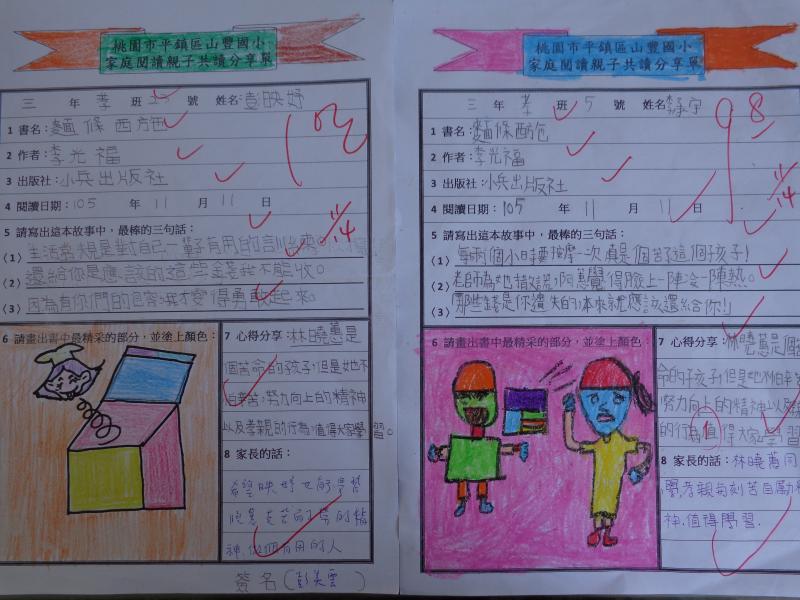 桃園市平鎮區山豐國小
家庭閱讀親子共讀分享單
三 年 孝 班 25 號 姓名:彭映妤
102
1 書名:麵條西施
2 作者:李光福
3 出版社:小兵出版社
11/14
4 閱讀日期:105 年 11 月 11 日
5 請寫出這本故事中,最棒的三句話:
(1) 生活常規是對自己一輩子有用的
(2) 還給你是應該的這些金我不能收。
(3) 因為有你們的包容,我才變得勇敢起來。
6 請畫出書中最精采的部分,並塗上顏色:
7 心得分享:林曉蕙是
個苦命的孩子,但是她不
怕辛苦,努力向上的精神
以及孝親的行為,值得大家學習。
8 家長的話:
希望映妤也能學習
曉蕙吃苦耐勞的精
神,做個有用的人
簽名(彭美雲)
桃園市平鎮區山豐國小
家庭閱讀親子共讀分享單
三 年 孝 班 5 號 姓名:
98
1 書名:麵條西施
2 作者:李光福
3 出版社:小兵出版社
11/14
4 閱讀日期:105 年 11 月 11 日
5 請寫出這本故事中,最棒的三句話:
(1) 每兩個小時要按摩一次真是個苦了這個孩子!
(2) 老師為她精,阿蕙覺得臉上一陣冷一陣熱。
(3) 那些錢是你遺失的,本來就應該還給你!!
6 請畫出書中最精采的部分,並塗上顏色:
7 心得分享:林曉蕙是個
命的孩子,但是她不怕辛
努力向上的精神以
的行為值得大家學習
8 家長的話:林曉蕙同
學,孝親與刻苦自勵
神.值得學習.